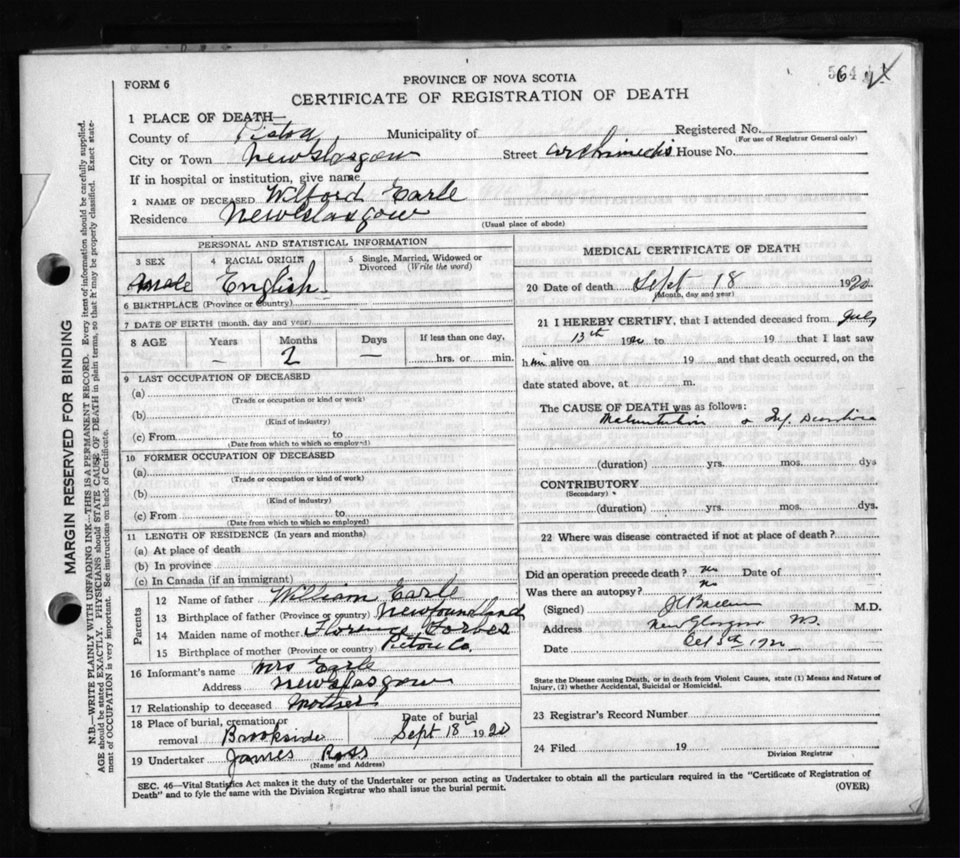 FORM 6
PROVINCE OF NOVA SCOTIA
564
CERTIFICATE OF REGISTRATION OF DEATH
1 PLACE OF DEATH—
County of Pictou Municipality of Registered No.
(For use of Registrar General only)
City or Town New Glasgow Street Archimedis House No.
If in hospital or institution, give name
2 NAME OF DECEASED Wilford Earle
Residence New Glasgow
(Usual place of abode)
PERSONAL AND STATISTICAL INFORMATION
3 SEX 4 RACIAL ORIGIN 5 Single, Married, Widowed or Divorced (Write the word)
male English
6 BIRTHPLACE (Province or Country)
7 DATE OF BIRTH (month, day and year)
8 AGE Years Months Days If less than one day,
— 2 — hrs. or min.
9 LAST OCCUPATION OF DECEASED
(a)
(Trade or occupation or kind of work)
(b)
(Kind of industry)
(c) From to
(Date from which to which so employed)
10 FORMER OCCUPATION OF DECEASED
(a)
(Trade or occupation or kind of work)
(b)
(Kind of industry)
(c) From to
(Date from which to which so employed)
11 LENGTH OF RESIDENCE (In years and months)
(a) At place of death
(b) In province
(c) In Canada (if an immigrant)
Parents
12 Name of father William Earle
13 Birthplace of father (Province or country) Newfoundland
14 Maiden name of mother Florence Forbes
15 Birthplace of mother (Province or country) Pictou Co.
16 Informant's name Mrs Earle
Address New Glasgow
17 Relationship to deceased Mother
18 Place of burial, cremation or removal Brookside Date of burial Sept 18 1920
19 Undertaker James Ross
(Name and Address)
MEDICAL CERTIFICATE OF DEATH
20 Date of death Sept 18 1920
(Month, day and year)
21 I HEREBY CERTIFY, that I attended deceased from July
13th 1920 to 19 that I last saw
him alive on 19 and that death occurred, on the
date stated above, at m.
The CAUSE OF DEATH was as follows:
Malnutrition Inf.
(duration) yrs. mos. dys
CONTRIBUTORY
(Secondary)
(duration) yrs. mos. dys.
22 Where was disease contracted if not at place of death?
Did an operation precede death? no Date of
Was there an autopsy? no
(Signed) M.D.
Address New Glasgow N.S.
Date Oct 5th 1920
State the Disease causing Death, or in death from Violent Causes, state (1) Means and Nature of
Injury, (2) whether Accidental, Suicidal or Homicidal.
23 Registrar's Record Number
24 Filed 19
Division Registrar
SEC. 46—Vital Statistics Act makes it the duty of the Undertaker or person acting as Undertaker to obtain all the particulars required in the "Certificate of Registration of
Death" and to fyle the same with the Division Registrar who shall issue the burial permit.
(OVER)
MARGIN RESERVED FOR BINDING
N.B.—WRITE PLAINLY WITH UNFADING INK—THIS IS A PERMANENT RECORD. Every item of information should be carefully supplied.
AGE should be stated EXACTLY. PHYSICIANS should STATE CAUSE OF DEATH in plain terms, so that it may be properly classified. Exact state-
ment of OCCUPATION is very important. See instructions on back of Certificate.